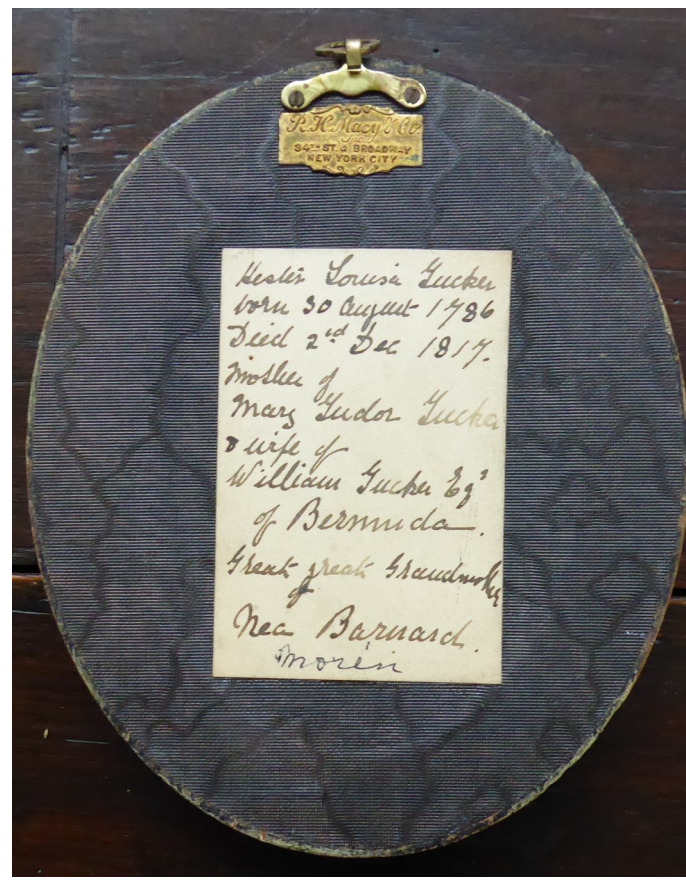 R. H. Macy & Co.
Inc.
34TH ST. & BROADWAY
NEW YORK CITY
Hester Louisa Tucker
born 30 August 1786
Died 2nd Dec 1817.
Mother of
Mary Tudor Tucker
& wife of
William Tucker Eqr
of Bermuda.
Great great Grandmother
of
Nea Barnard.
Morén